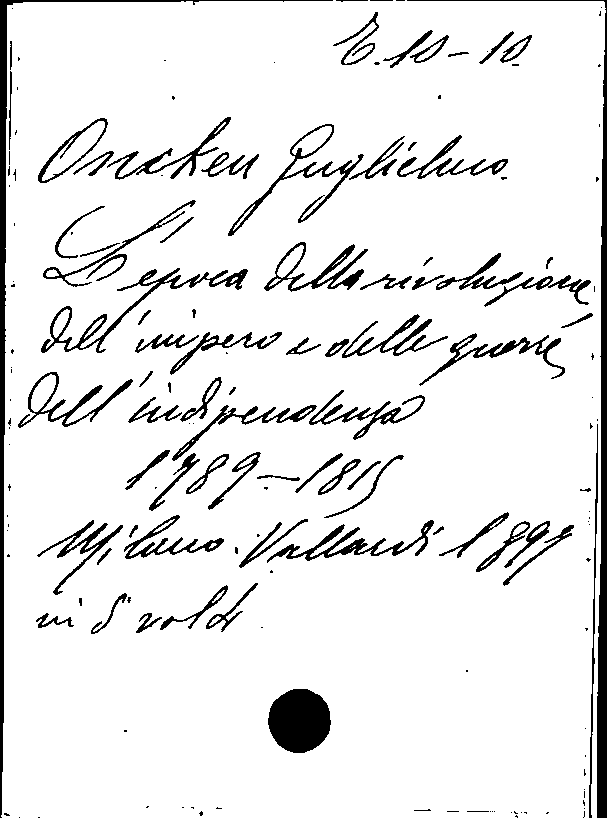 E.10-10.
Oncken Guglielmo.
L'epoca della rivoluzione
dell'impero e delle guerre
dell'indipendenza
1789-1815
Milano. Vallardi 1897
in 8° vol 4